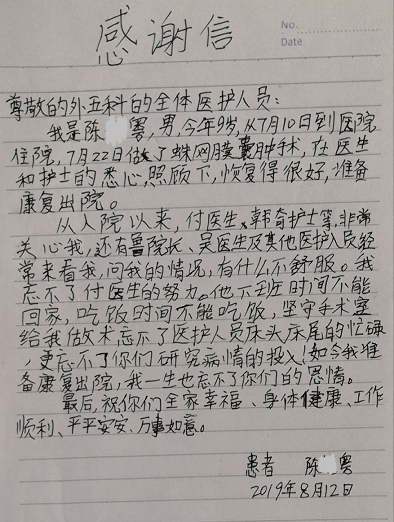 感谢信
No.
Date
尊敬的外五科的全体医护人员:
我是陈 粤,男,今年9岁,从7月10日到医院
住院,7月22日做了蛛网膜囊肿手术,在医生
和护士的悉心照顾下,恢复得很好,准备
康复出院。
从入院以来,付医生、韩奇护士等,非常
关心我,还有鲁院长、吴医生及其他医护人员经
常来看我,问我的情况,有什么不舒服。我
忘不了付医生的努力。他下班时间不能
回家,吃饭时间不能吃饭,坚守手术室
给我做术忘不了医护人员床头床尾的忙碌
,更忘不了你们研究病情的投入!如今我准
备康复出院,我一生也忘不了你们的恩情。
最后,祝你们全家幸福、身体健康、工作
顺利、平平安安、万事如意。
患者 陈 粤
2019年8月12日